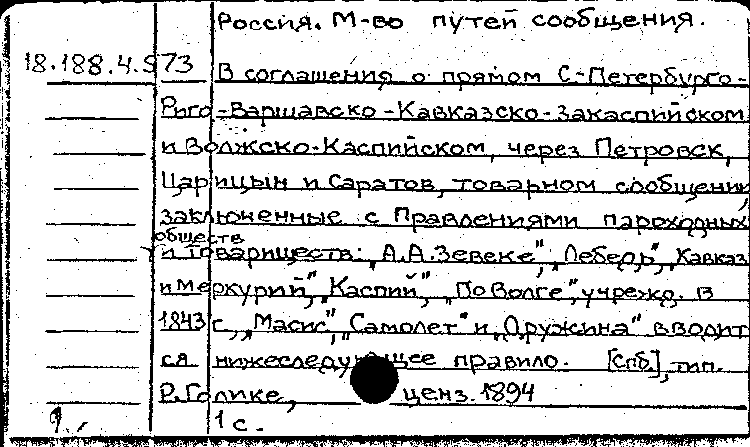 Россия. М-во путей сообщения.
18.188.4.573 В соглашения о прямом С-Петербурго-
Риго-Варшавско-Кавказско-Закаспийском
и Волжско-Каспийском, через Петровск,
Царицын и Саратов, товарном сообщении,
заключенные с Правлениями пароходных
обществ
и товариществ: „А.А.Зевеке", „Лебедь", „Кавказ
и Меркурий", „Каспий", „По Волге", учрежд. в
1843 г., „Масис", „Самолет" и „Дружина" вводит
ся нижеследующее правило. [Спб.], тип.
Р.Голике, ценз. 1894
1 с.